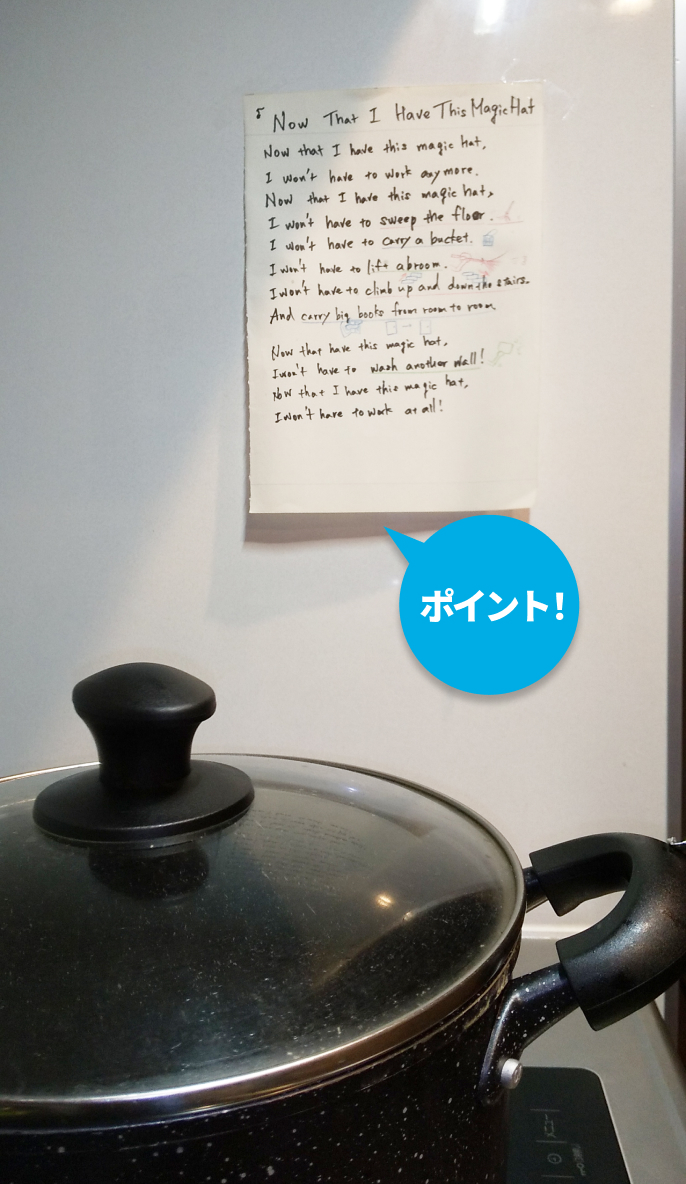 5 Now That I Have This Magic Hat
Now that I have this magic hat,
I won't have to work anymore.
Now that I have this magic hat,
I won't have to sweep the floor.
I won't have to carry a bucket.
I won't have to lift a broom.
I won't have to climb up and down the stairs.
And carry big books from room to room
Now that have this magic hat,
I won't have to wash another wall!
Now that I have this magic hat,
I won't have to work at all!
ポイント!